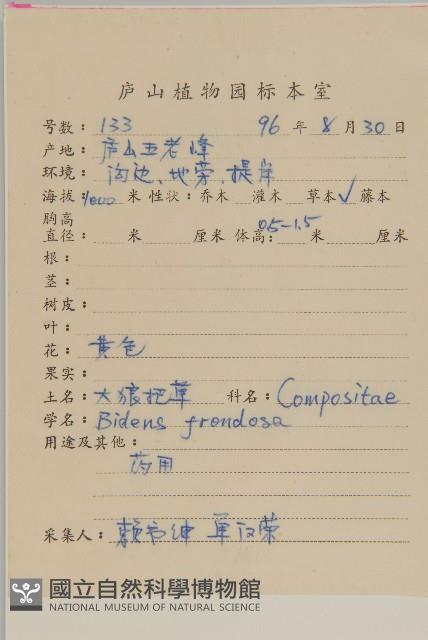 庐山植物园标本室
号数：133 96年8月30日
产地：庐山五老峰
环境：沟边、地旁、堤岸
海拔：1000米 性状：乔木 灌木 草本✓ 藤本
胸高
直径： 米 厘米 体高：0.5-1.5米 厘米
根：
茎：
树皮：
叶：
花：黄色
果实：
土名：大狼把草 科名：Compositae
学名：Bidens frondosa
用途及其他：
药用
采集人：赖书绅 单汉荣
國立自然科學博物館
NATIONAL MUSEUM OF NATURAL SCIENCE